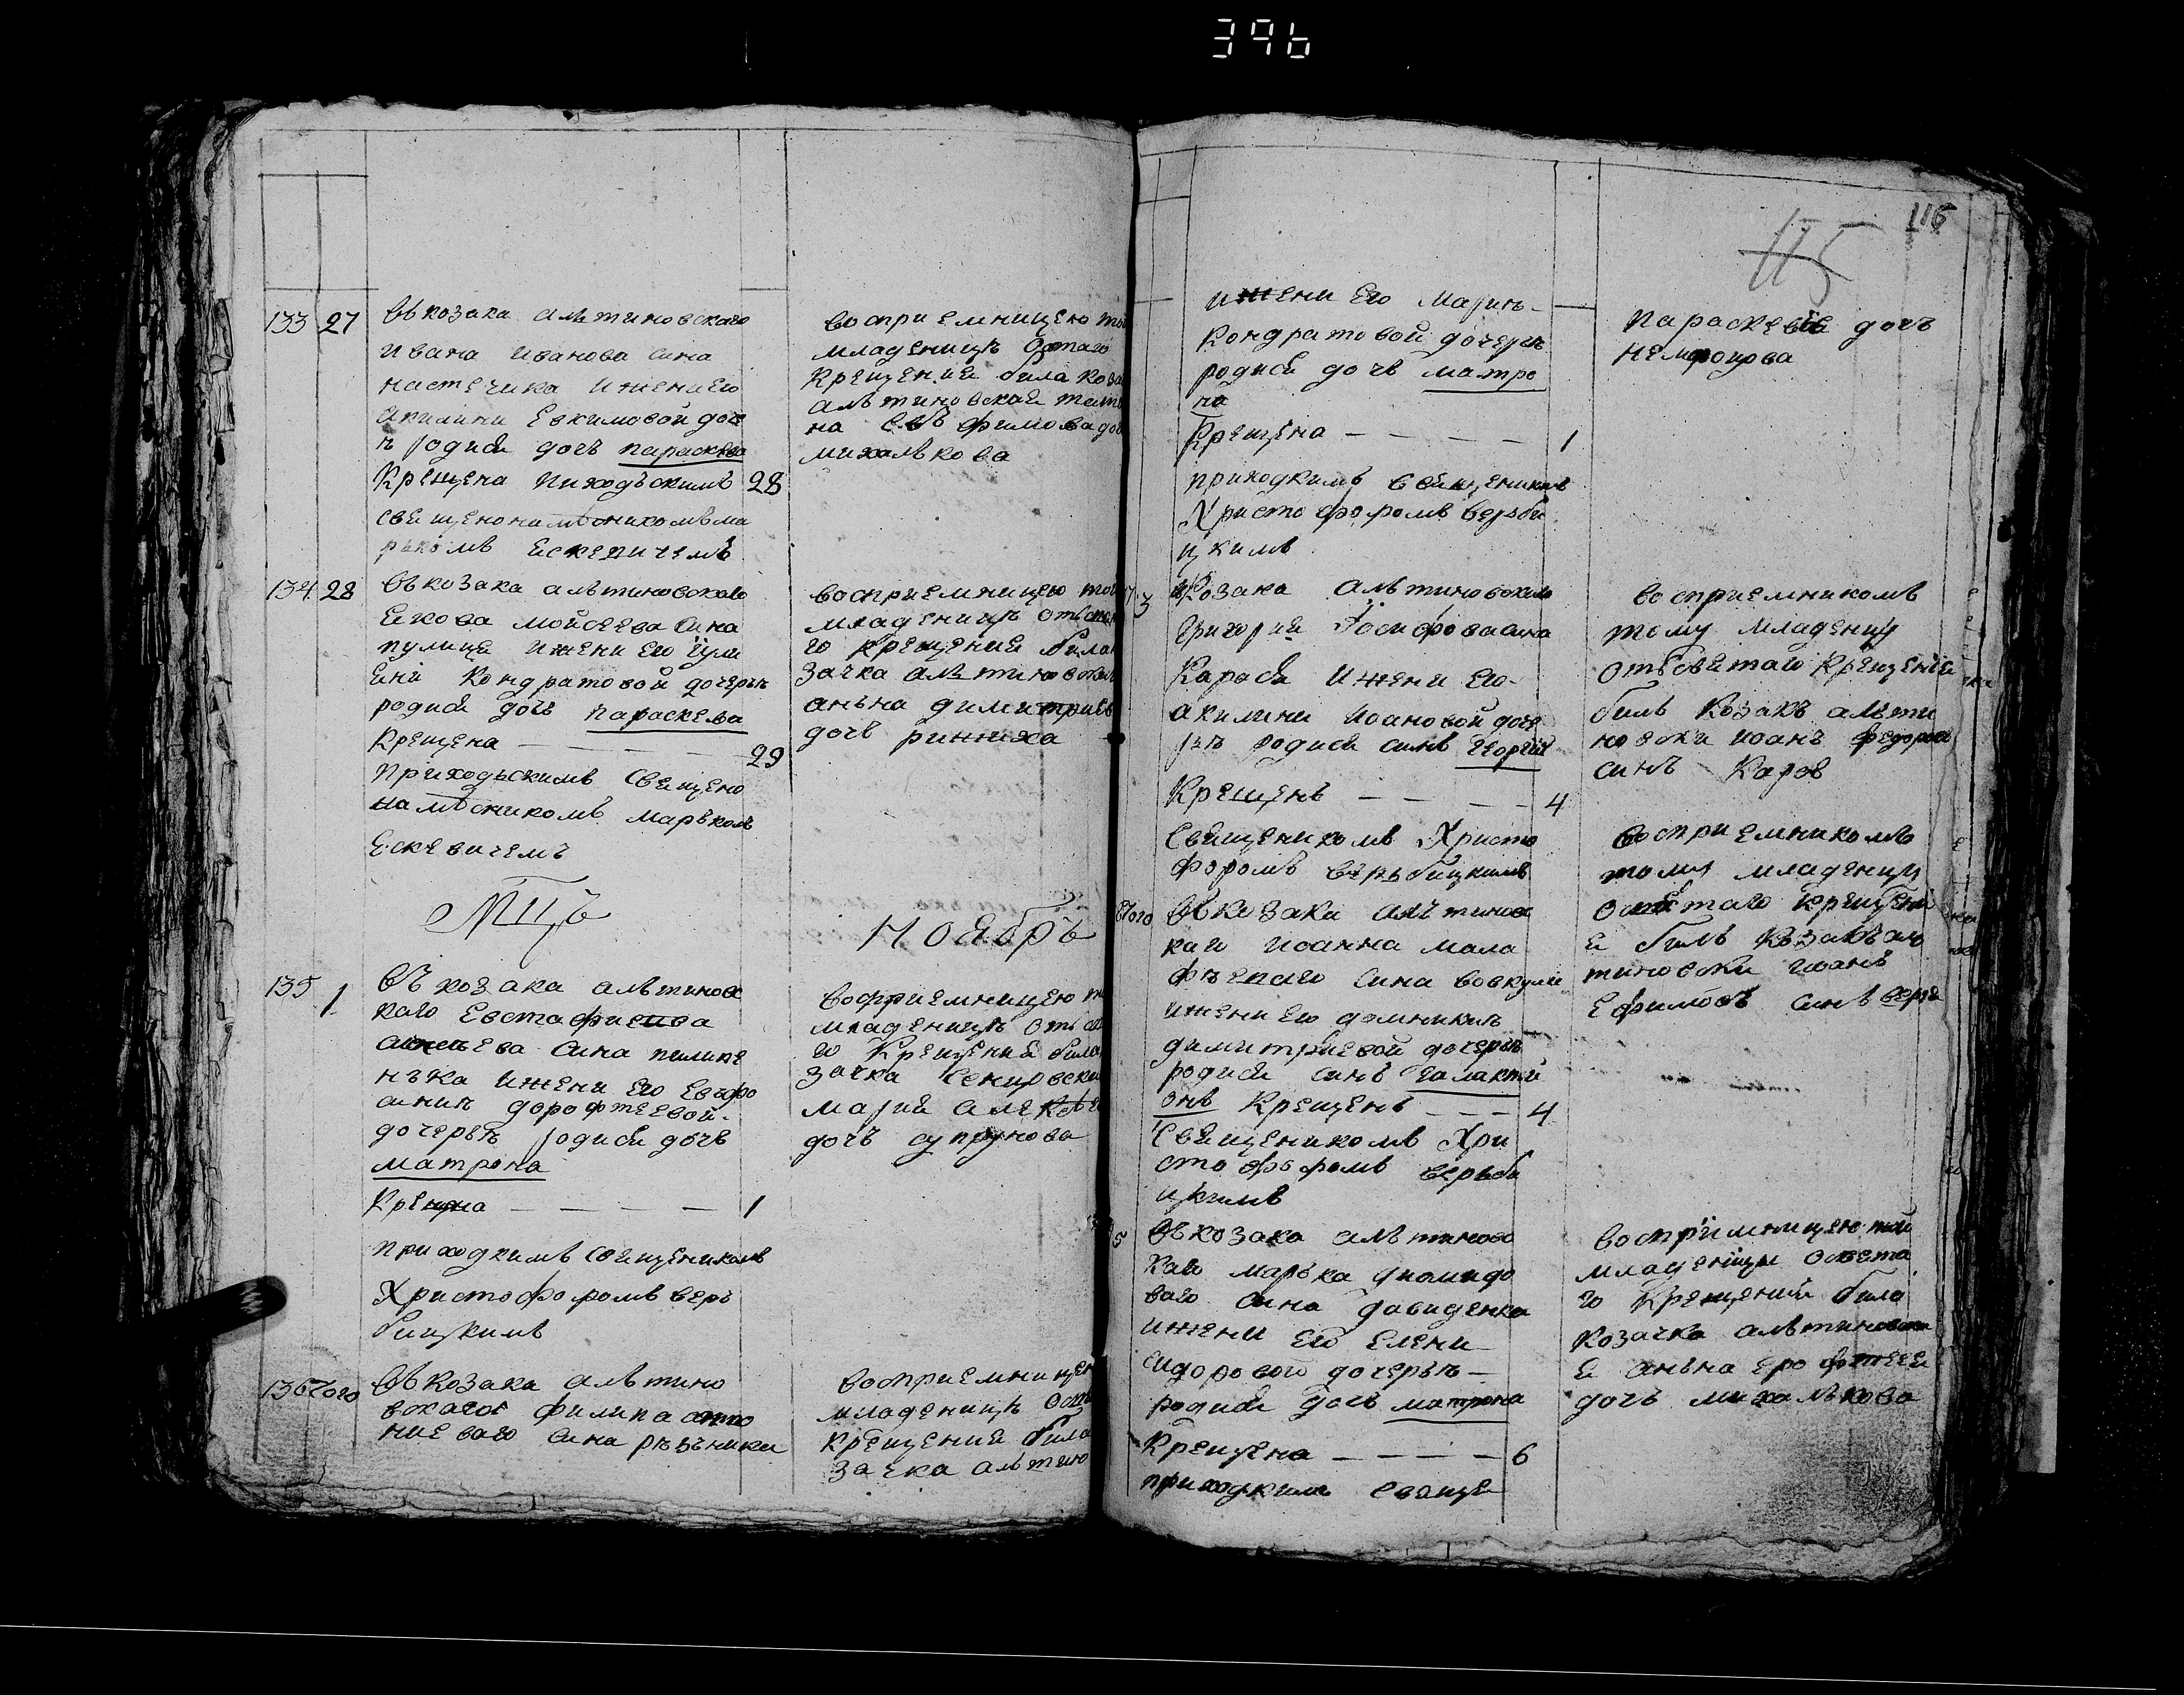 396
133 27 Въ козака алътиновскаго
Ивана Иванова сина
настечика и жени его
Акилини Евкимовой доче
ѣ родися дочь Параскева
Крещена Пиходъскимъ 28
священонамѣсникомъ ма
ръкомъ Ескевичемъ
воспри емницею
младеницѣ
крещения била коза
алътиновская
на Ефимова до
михалькова
134 28 Въ козака алътиновскаго
Екова Мойсеева сина
пулища и жени его Іули
ені Кондратовой дочерѣ
родися дочь Параскева
Крещена — — — — 29
Приходъскимъ Священо
намѣсникомъ маръкомъ
Ескевичемъ
восприемницею
младеницѣ
го крещения била
зачка алътиновска
анъна димитриев
дочь ринниха
МЦъ
Ноябръ
135 1 Въ козака алътиновс
каго Евстафиева
сина пилипе
нъка и жени его Евъфро
синиѣ дорофтеевой
дочерѣ родися дочь
матрона
Крещена — — — — 1
приходкимъ священикомъ
Христофоромъ веръ
бицкимъ
восприемницею
младеницѣ
го Крещения била
зачка
мария
дочь супрунова
136 того Въ козака алътино
вскаго филипа анто
ниеваго сина ръзъника
восприемницею
младеницѣ
крещения била
зачка алътино
115
116
и жени его Маринѣ
Кондратовой дочерѣ
родися дочь матро
на
Крещена — — — — 1
приходкимъ священикомъ
Христофоромъ верьби
цкимъ
Параскевія дочь
немфонрова
3 козака алътиновскаго
Григория Іосифова сина
Карася и жени его
акилини Иоановой доче
рѣ родися синъ Георгій
Крещенъ — — — — 4
Священикомъ Христо
форомъ веръбицкимъ
восприемникомъ
тому младенцу
отъ святаго крещения
билъ козакъ алъти
новски иоанъ федоровъ
синъ Каров
того Въ козака алътиновс
каго иоанна мала
фѣенаго сина вовкулы
и жени его домникѣ
димитриевой дочерѣ
родися синъ Галакти
онъ Крещенъ — — — 4
Священикомъ Хри
стофоромъ верьби
цкимъ
восприемникомъ
тому младенцу
крещені
я билъ козакъ алъ
тиновски иоанъ
Ефимовъ синъ
5 Въ козака алътиновс
каго маръка диомидо
ваго сина давиденка
и жени его Елени
сидоровой дочерѣ —
родися дочь матрона
Крещена — — — — 6
приходкимъ свяще
воспріимницею той
младеници
го крещения била
козачка алътиновска
я анъна ерофтеева
дочь михалькова